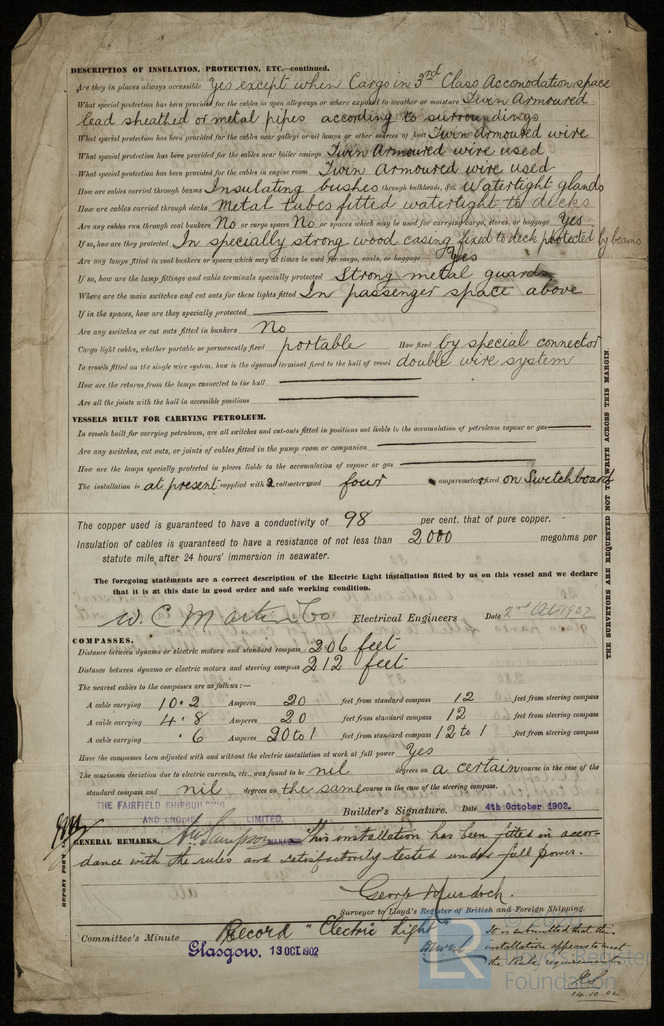 DESCRIPTION OF INSULATION, PROTECTION, ETC.—continued.
Are they in places always accessible Yes except when Cargo in 3rd Class Accomodation space
What special protection has been provided for the cables in open alleyways or where exposed to weather or moisture Twin Armoured
lead sheathed or metal pipes according to surroundings
What special protection has been provided for the cables near galleys or oil lamps or other sources of heat Twin Armoured wire
What special protection has been provided for the cables near boiler casings Twin Armoured wire used
What special protection has been provided for the cables in engine room Twin Armoured wire used
How are cables carried through beams Insulating bushes through bulkheads, &c. Watertight glands
How are cables carried through decks Metal tubes fitted watertight to decks
Are any cables run through coal bunkers No or cargo spaces No or spaces which may be used for carrying cargo, stores, or baggage Yes
If so, how are they protected In specially strong wood casing fixed to deck protected by beams
Are any lamps fitted in coal bunkers or spaces which may at times be used for cargo, coals, or baggage Yes
If so, how are the lamp fittings and cable terminals specially protected Strong metal guards
Where are the main switches and cut outs for these lights fitted In passenger space above
If in the spaces, how are they specially protected
Are any switches or cut outs fitted in bunkers No
Cargo light cables, whether portable or permanently fixed portable How fixed by special connector
In vessels fitted on the single wire system, how is the dynamo terminal fixed to the hull of vessel double wire system
How are the returns from the lamps connected to the hull
Are all the joints with the hull in accessible positions
VESSELS BUILT FOR CARRYING PETROLEUM.
In vessels built for carrying petroleum, are all switches and cut-outs fitted in positions not liable to the accumulation of petroleum vapour or gas
Are any switches, cut outs, or joints of cables fitted in the pump room or companion
How are the lamps specially protected in places liable to the accumulation of vapour or gas
The installation is at present supplied with 2 voltmeters and four amperemeters fixed on Switchboard
The copper used is guaranteed to have a conductivity of 98 per cent. that of pure copper.
Insulation of cables is guaranteed to have a resistance of not less than 2000 megohms per
statute mile after 24 hours' immersion in seawater.
The foregoing statements are a correct description of the Electric Light installation fitted by us on this vessel and we declare
that it is at this date in good order and safe working condition.
W. C. Martin & Co Electrical Engineers Date 2nd Oct 1902
COMPASSES.
Distance between dynamo or electric motors and standard compass 206 feet
Distance between dynamo or electric motors and steering compass 212 feet
The nearest cables to the compasses are as follows:—
A cable carrying 10.2 Amperes 20 feet from standard compass 12 feet from steering compass
A cable carrying 4.8 Amperes 20 feet from standard compass 12 feet from steering compass
A cable carrying .6 Amperes 20 to 1 feet from standard compass 12 to 1 feet from steering compass
Have the compasses been adjusted with and without the electric installation at work at full power Yes
The maximum deviation due to electric currents, etc., was found to be nil degrees on a certain course in the case of the
standard compass and nil degrees on the same course in the case of the steering compass.
THE FAIRFIELD SHIPBUILDING
AND ENGINEERING LIMITED.
Builder's Signature. Date 4th October 1902.
MANAGER
GENERAL REMARKS. This installation has been fitted in accor-
dance with the rules and satisfactorily tested under full power.
George Murdoch.
Surveyor to Lloyd's Register of British and Foreign Shipping.
Committee's Minute Record "Electric Light"
Glasgow, 13 OCT. 1902
It is submitted that this
installation appears to meet
the Rule requirements
14.10.02
THE SURVEYORS ARE REQUESTED NOT TO WRITE ACROSS THIS MARGIN.
REPORT FORM
LR
Lloyd's Register
Foundation